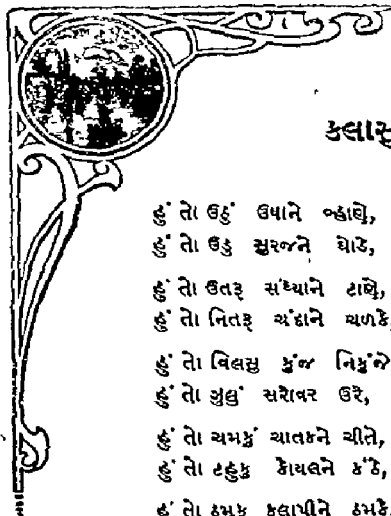 હું તો ઉઠું ઉષાને વ્હાણે,
હું તો ઉડુ સુરજને ઘોડે,
હું તો ઉતરૂ સંધ્યાને ટાણે,
હું તો નિતરૂ ચંદાને ચળકે
હું તો વિલસુ કુંજ નિકુંજે
હું તો ઝુલું સરોવર ઉરે,
હું તો ચમકું ચાતકને ચીતે,
હું તો ટહુકુ કોયલને કંઠે,
હું તો ઠમકુ કલાપીને ઠમકે